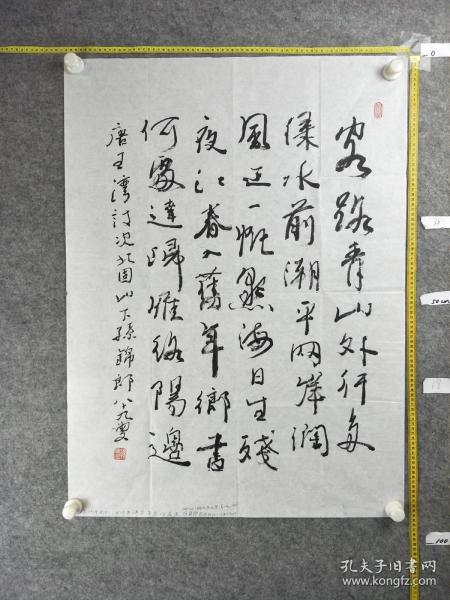 客路青山外行舟
綠水前潮平两岸濶
風正一帆懸海日生殘
夜江春入舊年鄉書
何處達歸雁洛陽邊
唐王灣诗次北固山下孫錦郎八十九叟
0
50cm
100
孔夫子旧书网
www.kongfz.com